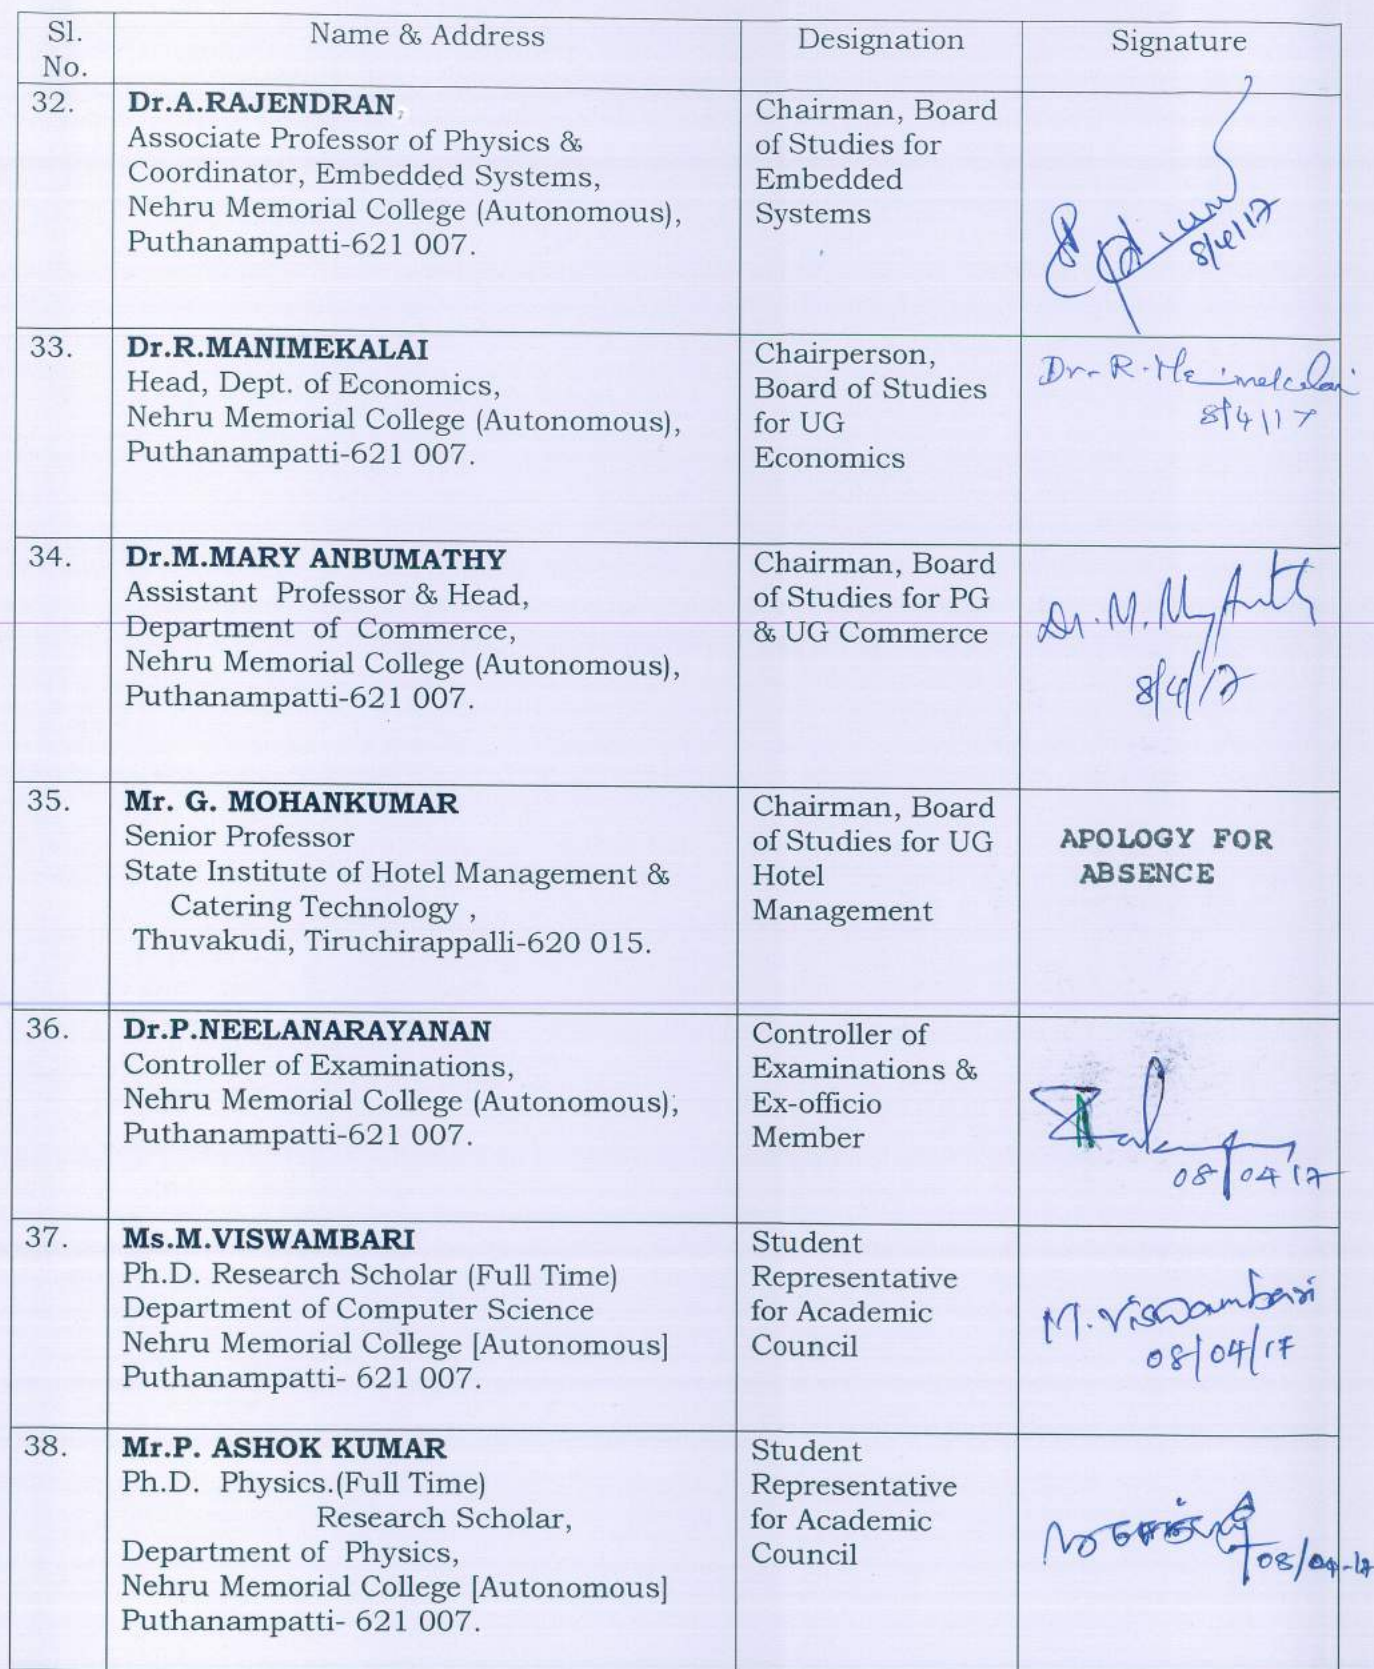 Sl. No.
Name & Address
Designation
Signature
32.
Dr.A.RAJENDRAN,
Associate Professor of Physics &
Coordinator, Embedded Systems,
Nehru Memorial College (Autonomous),
Puthanampatti-621 007.
Chairman, Board
of Studies for
Embedded
Systems
8/4/17
33.
Dr.R.MANIMEKALAI
Head, Dept. of Economics,
Nehru Memorial College (Autonomous),
Puthanampatti-621 007.
Chairperson,
Board of Studies
for UG
Economics
Dr. R.
8/4/17
34.
Dr.M.MARY ANBUMATHY
Assistant Professor & Head,
Department of Commerce,
Nehru Memorial College (Autonomous),
Puthanampatti-621 007.
Chairman, Board
of Studies for PG
& UG Commerce
Dr. M.
8/4/17
35.
Mr. G. MOHANKUMAR
Senior Professor
State Institute of Hotel Management &
Catering Technology ,
Thuvakudi, Tiruchirappalli-620 015.
Chairman, Board
of Studies for UG
Hotel
Management
APOLOGY FOR
ABSENCE
36.
Dr.P.NEELANARAYANAN
Controller of Examinations,
Nehru Memorial College (Autonomous),
Puthanampatti-621 007.
Controller of
Examinations &
Ex-officio
Member
08/04/17
37.
Ms.M.VISWAMBARI
Ph.D. Research Scholar (Full Time)
Department of Computer Science
Nehru Memorial College [Autonomous]
Puthanampatti- 621 007.
Student
Representative
for Academic
Council
M. Viswambari
08/04/17
38.
Mr.P. ASHOK KUMAR
Ph.D. Physics.(Full Time)
Research Scholar,
Department of Physics,
Nehru Memorial College [Autonomous]
Puthanampatti- 621 007.
Student
Representative
for Academic
Council
08/04-17